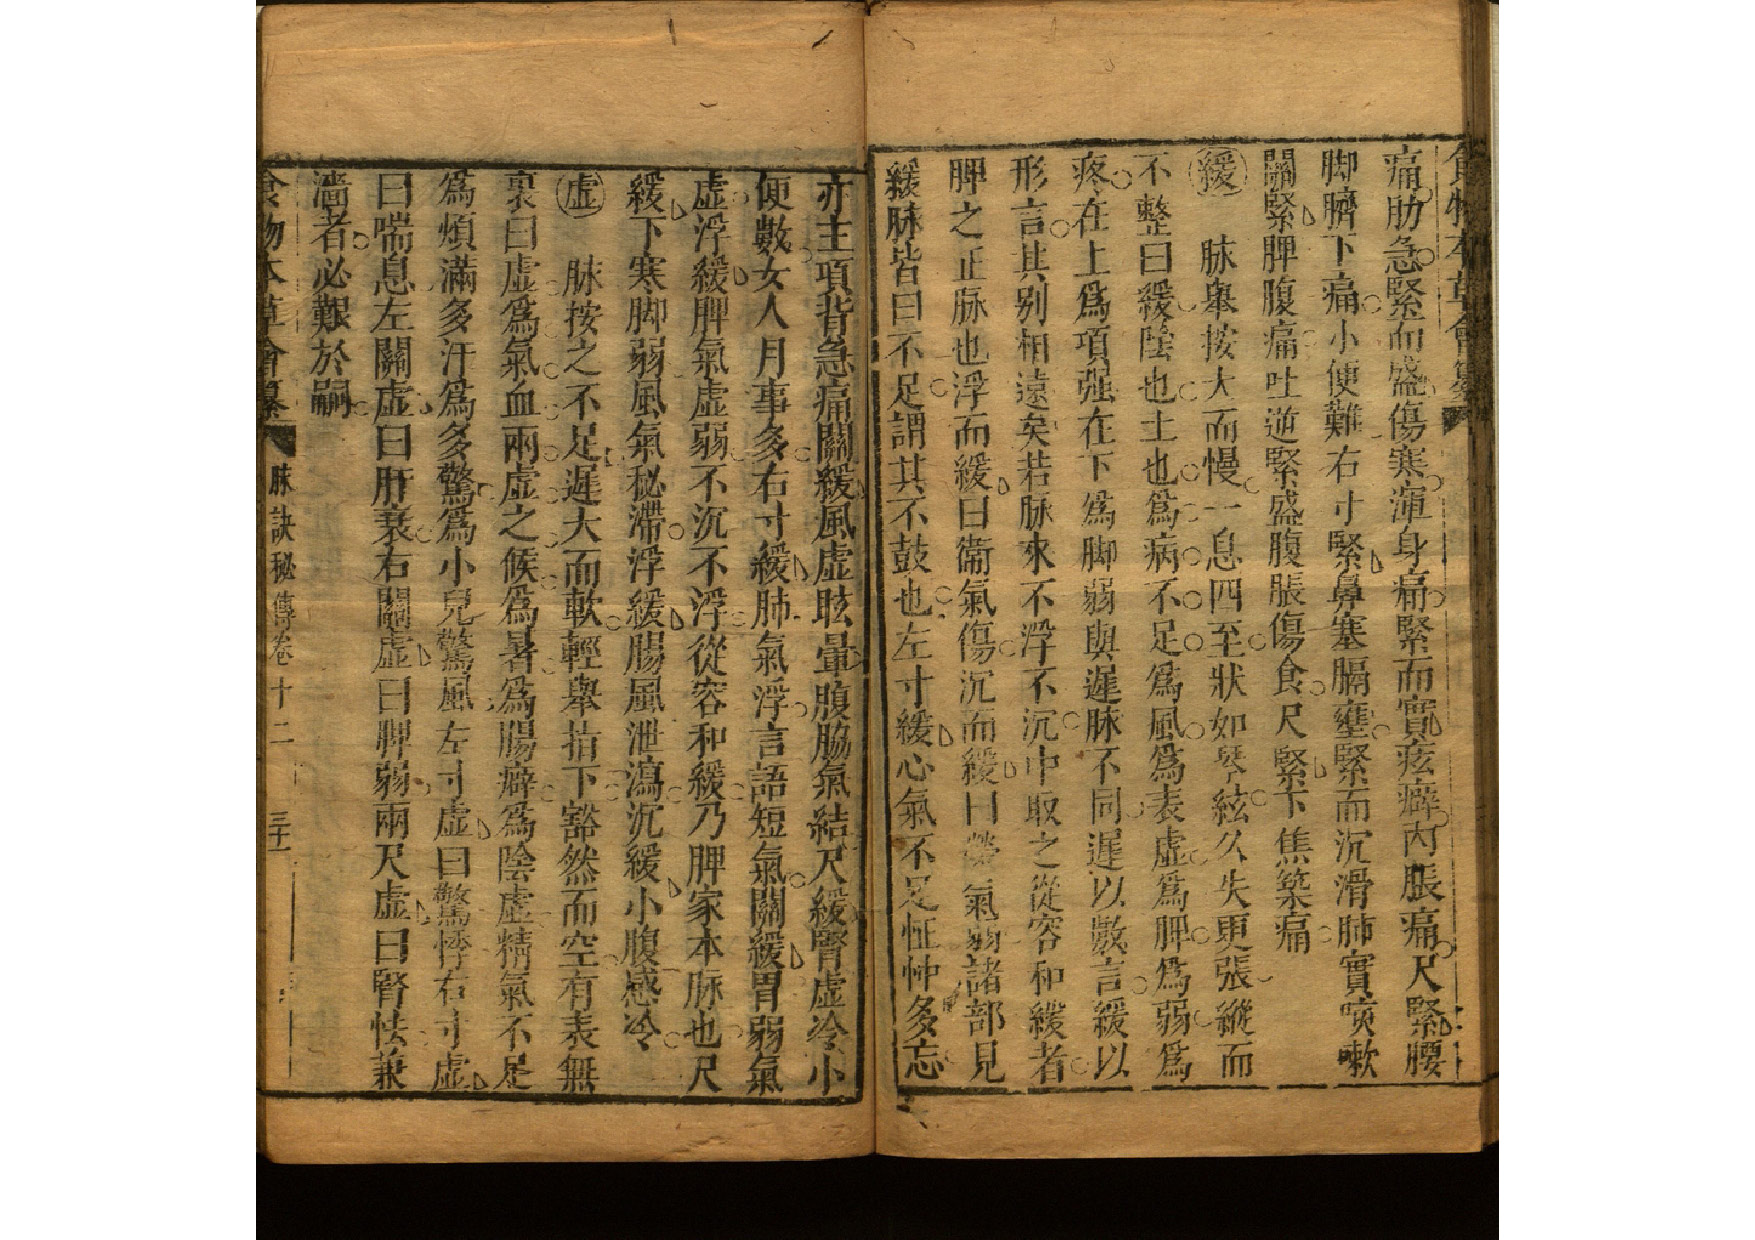 食物本草會纂
痛肋急緊而盛傷寒渾身痛緊而實痃癖內脹痛尺緊腰
脚臍下痛小便難右寸緊鼻塞膈壅緊而沉滑肺實咳嗽
關緊脾腹痛吐逆緊盛腹脹傷食尺緊下焦築痛
緩　脉舉按大而慢一息四至狀如琴絃久失更張縱而
不整曰緩陰也土也爲病不足爲風爲表虛爲脾爲弱爲
疼在上爲項强在下爲脚弱與遲脉不同遲以數言緩以
形言其别相遠矣若脉來不浮不沉中取之從容和緩者
脾之正脉也浮而緩曰衞氣傷沉而緩曰榮氣弱諸部見
緩脉皆曰不足謂其不鼓也左寸緩心氣不足怔忡多忘
亦主項背急痛關緩風虛眩暈腹脇氣結尺緩腎虛冷小
便數女人月事多右寸緩肺氣浮言語短氣關緩胃弱氣
虛浮緩脾氣虛弱不沉不浮從容和緩乃脾家本脉也尺
緩下寒脚弱風氣秘滯浮緩腸風泄瀉沉緩小腹感冷
虛　脉按之不足遲大而軟輕舉指下豁然而空有表無
裏曰虛爲氣血兩虛之候爲暑爲腸癖爲陰虛精氣不足
爲煩滿多汗爲多驚爲小兒驚風左寸虛曰驚悸右寸虛
曰喘息左關虛曰肝衰右關虛曰脾弱兩尺虛曰腎怯兼
濇者必艱於嗣
食物本草會纂　脉訣秘傳卷十二　三十